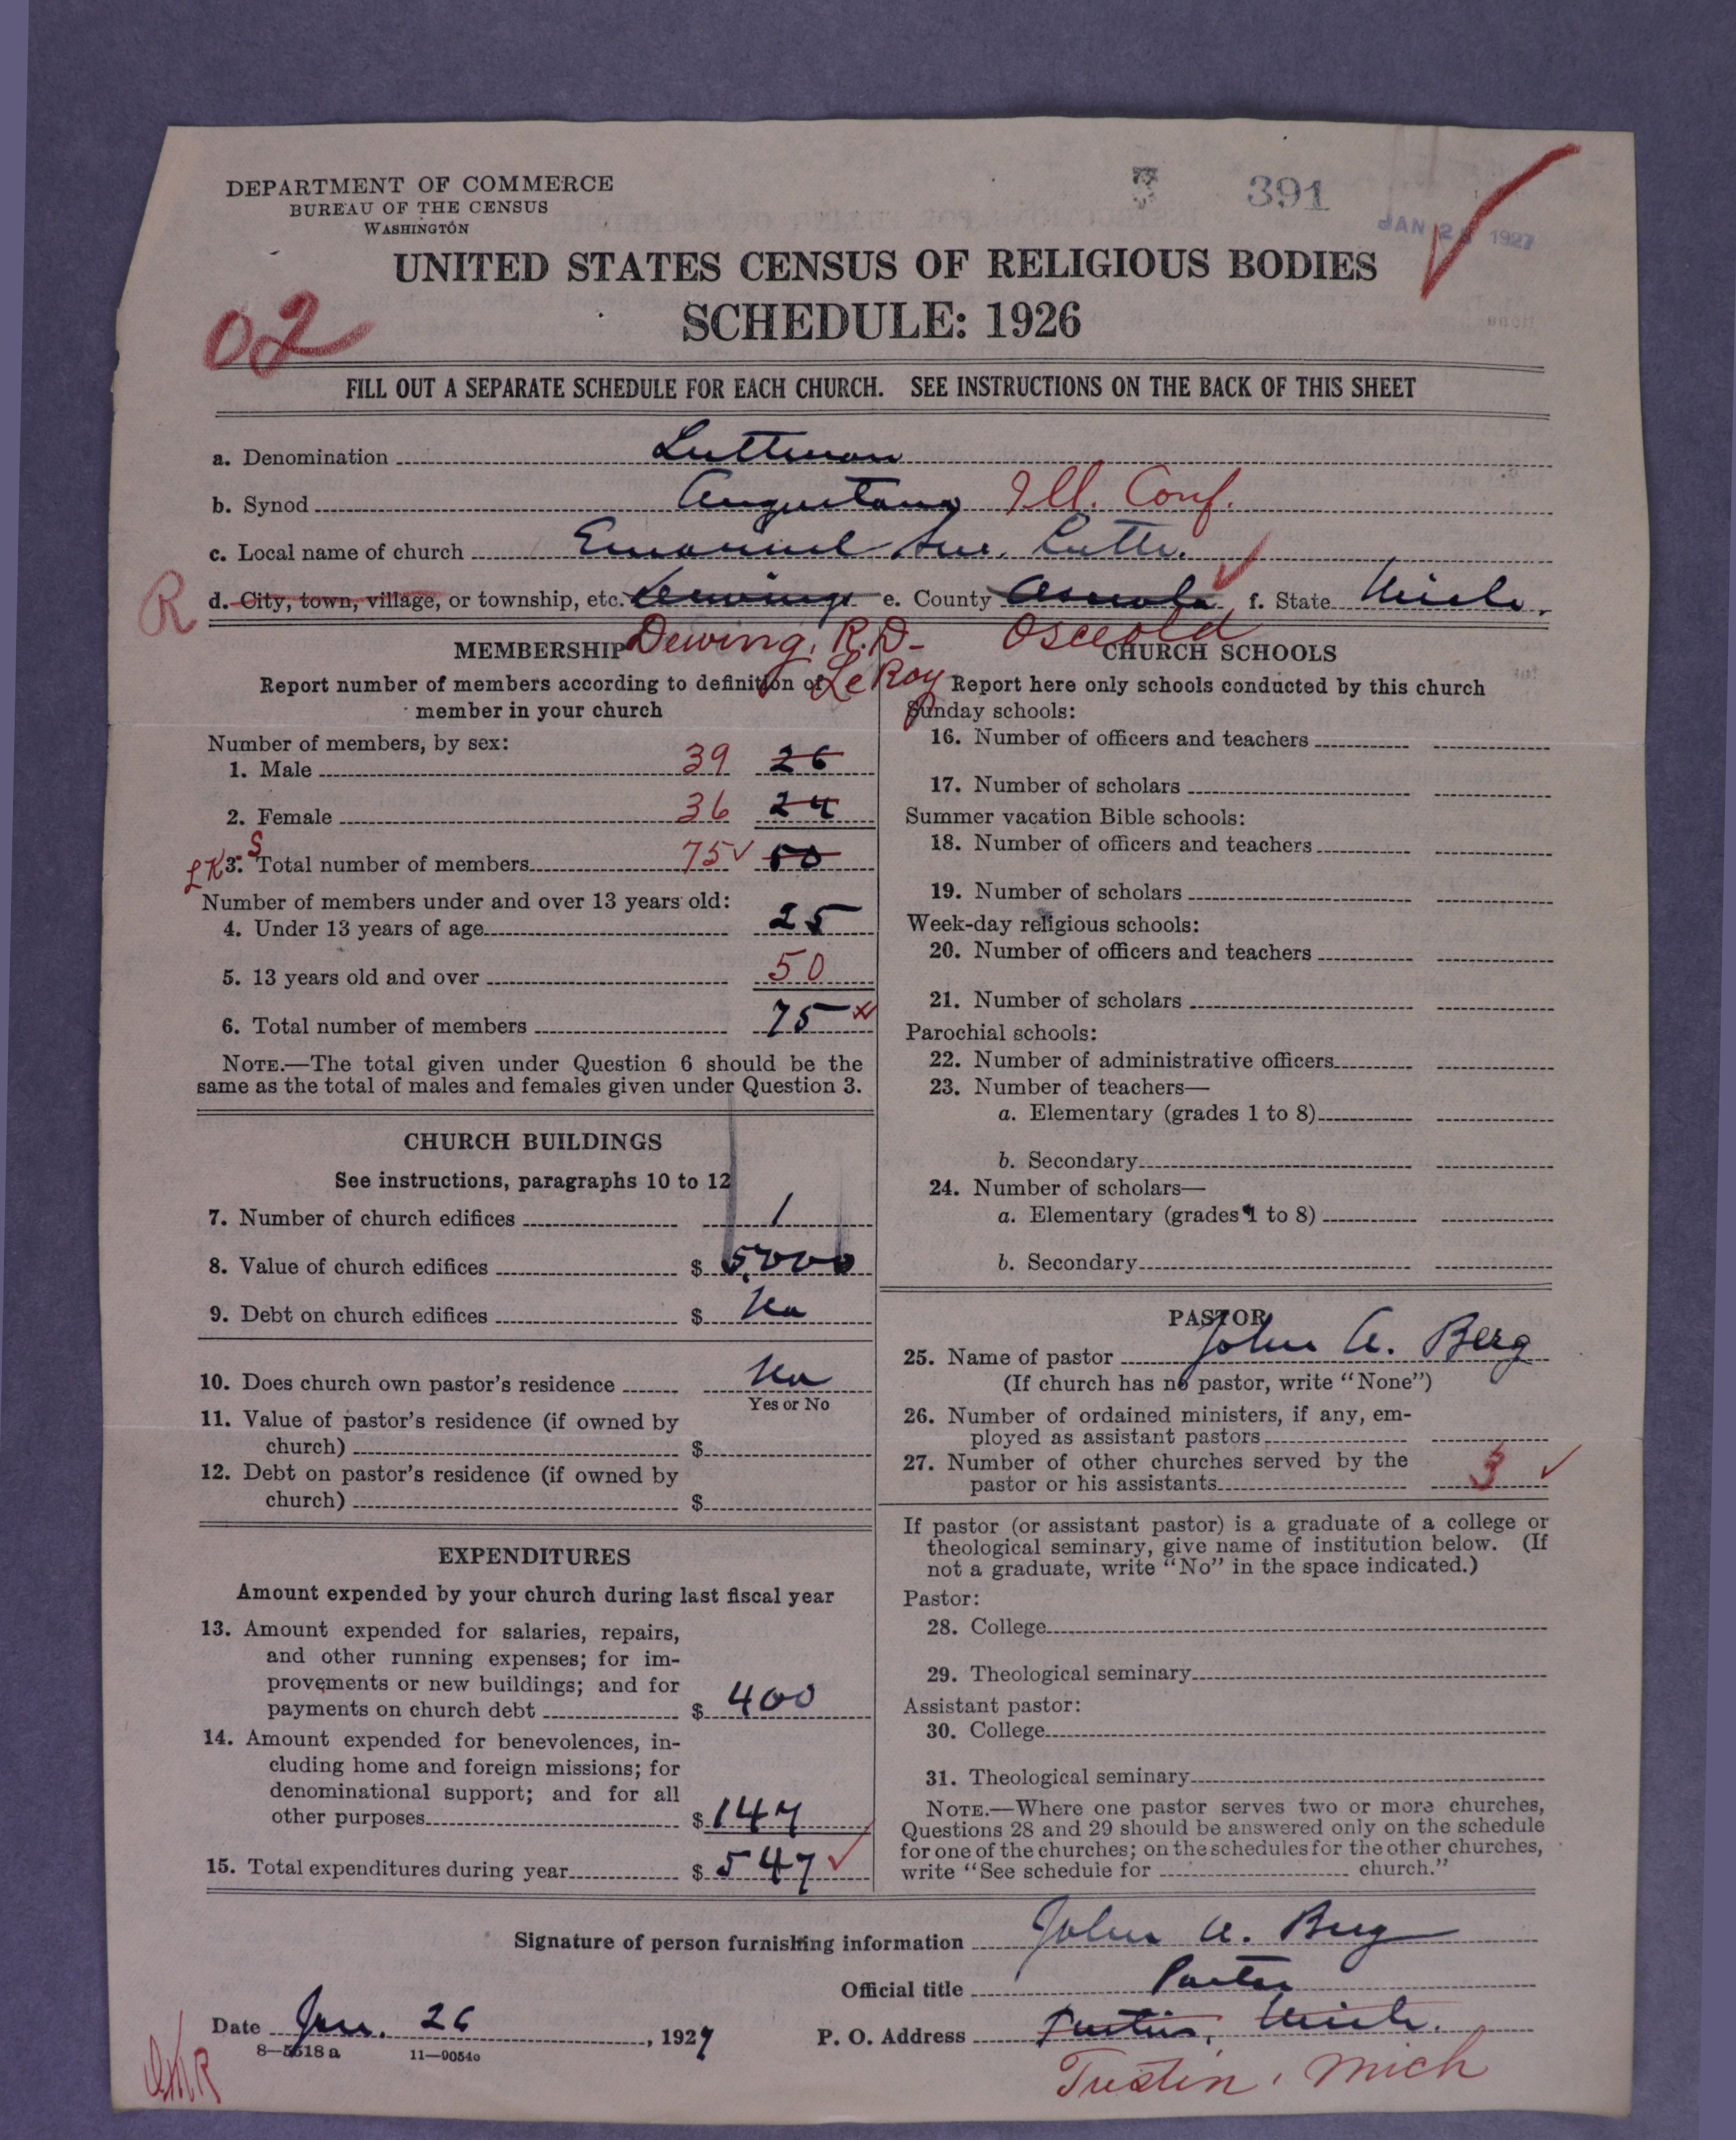 DEPARTMENT OF COMMERCE
BUREAU OF THE CENSUS
WASHINGTON
391
JAN 28 1927
UNITED STATES CENSUS OF RELIGIOUS BODIES
SCHEDULE: 1926
02
FILL OUT A SEPARATE SCHEDULE FOR EACH CHURCH. SEE INSTRUCTIONS ON THE BACK OF THIS SHEET
a. Denomination Lutheran
b. Synod Augustana Ill. Conf.
c. Local name of church Emanuel Luth.
R d. City, town, village, or township, etc. Dewings e. County Osceola f. State Mich.
Dewing, R.D- LeRoy Osceola
MEMBERSHIP
Report number of members according to definition of
member in your church
Number of members, by sex:
1. Male 39 26
2. Female 36 24
LK 3. S Total number of members 75 50
Number of members under and over 13 years old:
4. Under 13 years of age 25
5. 13 years old and over 50
6. Total number of members 75
NOTE.—The total given under Question 6 should be the
same as the total of males and females given under Question 3.
CHURCH BUILDINGS
See instructions, paragraphs 10 to 12
7. Number of church edifices 1
8. Value of church edifices $ 5000
9. Debt on church edifices $ No
10. Does church own pastor's residence No
Yes or No
11. Value of pastor's residence (if owned by
church) $
12. Debt on pastor's residence (if owned by
church) $
EXPENDITURES
Amount expended by your church during last fiscal year
13. Amount expended for salaries, repairs,
and other running expenses; for im-
provements or new buildings; and for
payments on church debt $ 400
14. Amount expended for benevolences, in-
cluding home and foreign missions; for
denominational support; and for all
other purposes $ 147
15. Total expenditures during year $ 547
CHURCH SCHOOLS
Report here only schools conducted by this church
Sunday schools:
16. Number of officers and teachers
17. Number of scholars
Summer vacation Bible schools:
18. Number of officers and teachers
19. Number of scholars
Week-day religious schools:
20. Number of officers and teachers
21. Number of scholars
Parochial schools:
22. Number of administrative officers
23. Number of teachers—
a. Elementary (grades 1 to 8)
b. Secondary
24. Number of scholars—
a. Elementary (grades 1 to 8)
b. Secondary
PASTOR
25. Name of pastor John A. Berg
(If church has no pastor, write "None")
26. Number of ordained ministers, if any, em-
ployed as assistant pastors
27. Number of other churches served by the
pastor or his assistants 3
If pastor (or assistant pastor) is a graduate of a college or
theological seminary, give name of institution below. (If
not a graduate, write "No" in the space indicated.)
Pastor:
28. College
29. Theological seminary
Assistant pastor:
30. College
31. Theological seminary
NOTE.—Where one pastor serves two or more churches,
Questions 28 and 29 should be answered only on the schedule
for one of the churches; on the schedules for the other churches,
write "See schedule for church."
Signature of person furnishing information John A. Berg
Official title Pastor
Date Jan. 26, 1927 P. O. Address Tustin, Mich.
8—5518 a 11—9054o
Tustin, Mich